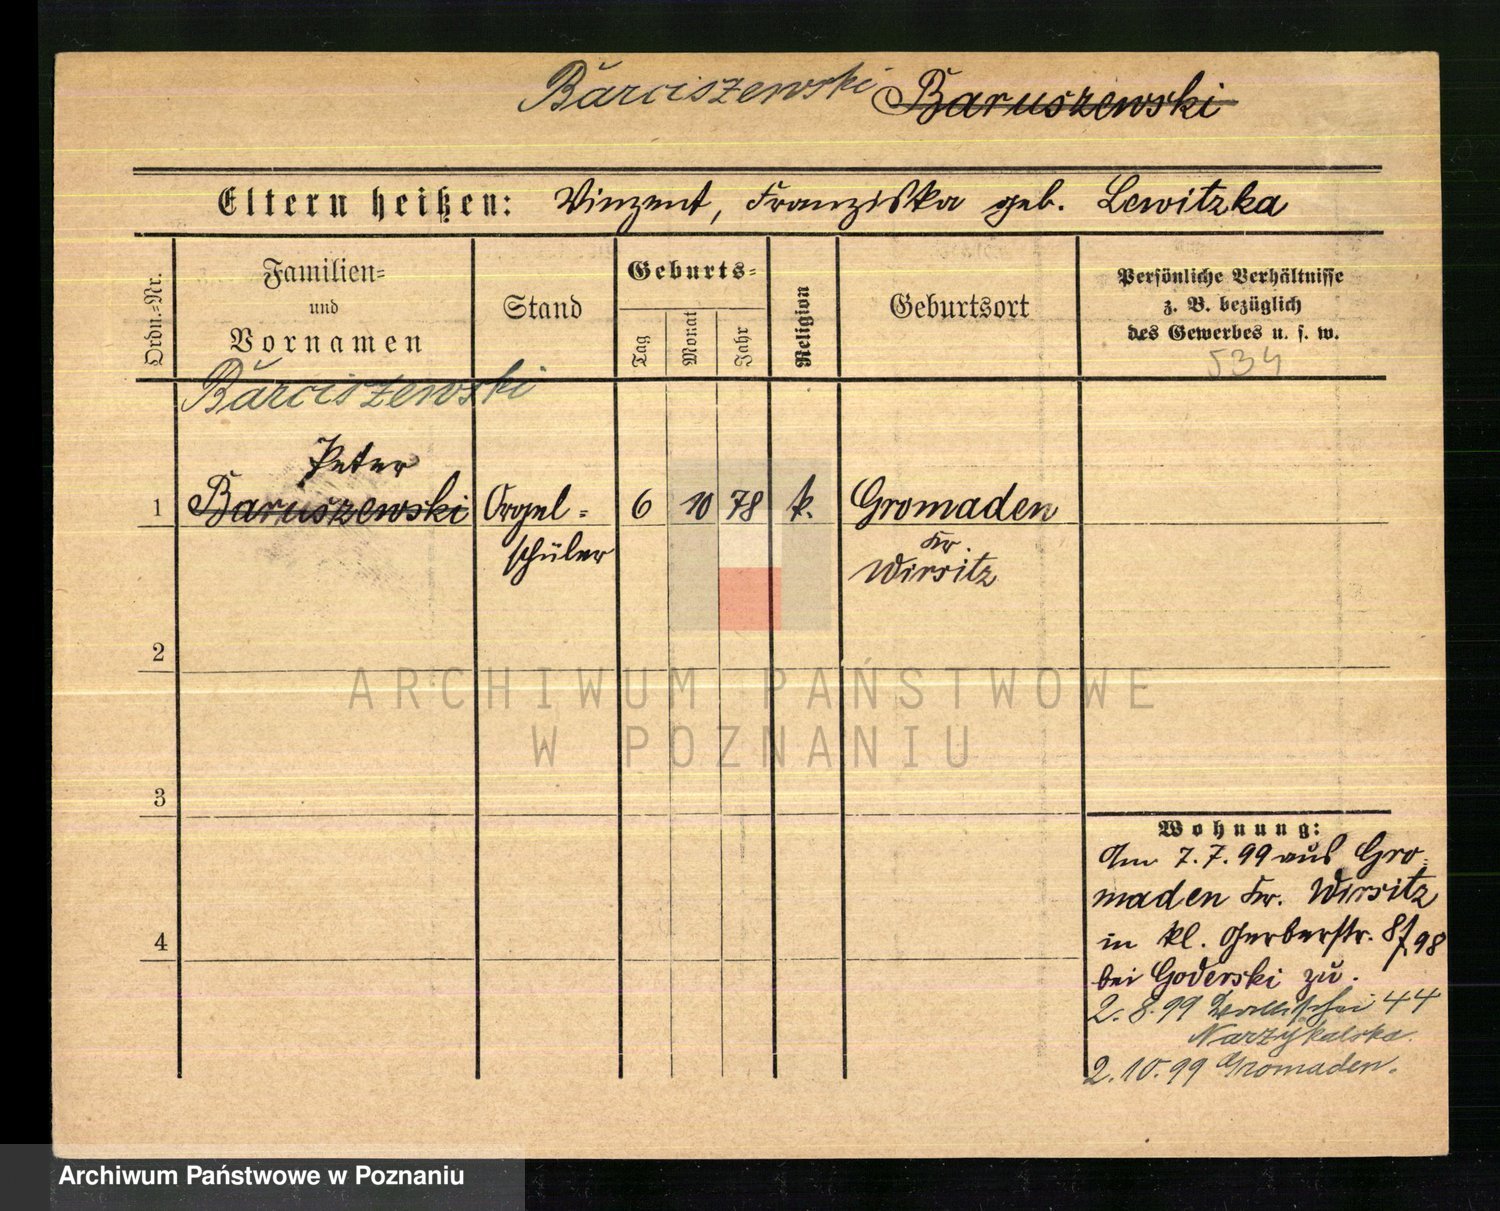 Barciszewski Baruszewski
Eltern heißen: Vinzent, Franziska geb. Lewitzka
Ordn.-Nr.
Familien-
und
Vornamen
Stand
Geburts-
Tag
Monat
Jahr
Religion
Geburtsort
Persönliche Verhältnisse
z. B. bezüglich
des Gewerbes u. s. w.
534
Barciszewski
Peter
1 Baruszewski Orgel- 6 10 78 k. Gromaden
schüler Kr.
Wirsitz
2
ARCHIWUM PAŃSTWOWE
W POZNANIU
3
Wohnung:
Am 7.7.99 aus Gro-
maden Kr. Wirsitz
4
in kl. Gerberstr. 8 f. 98
bei Goderski zu.
2.8.99 Wallischei 44
2.10.99 Gromaden.
Archiwum Państwowe w Poznaniu